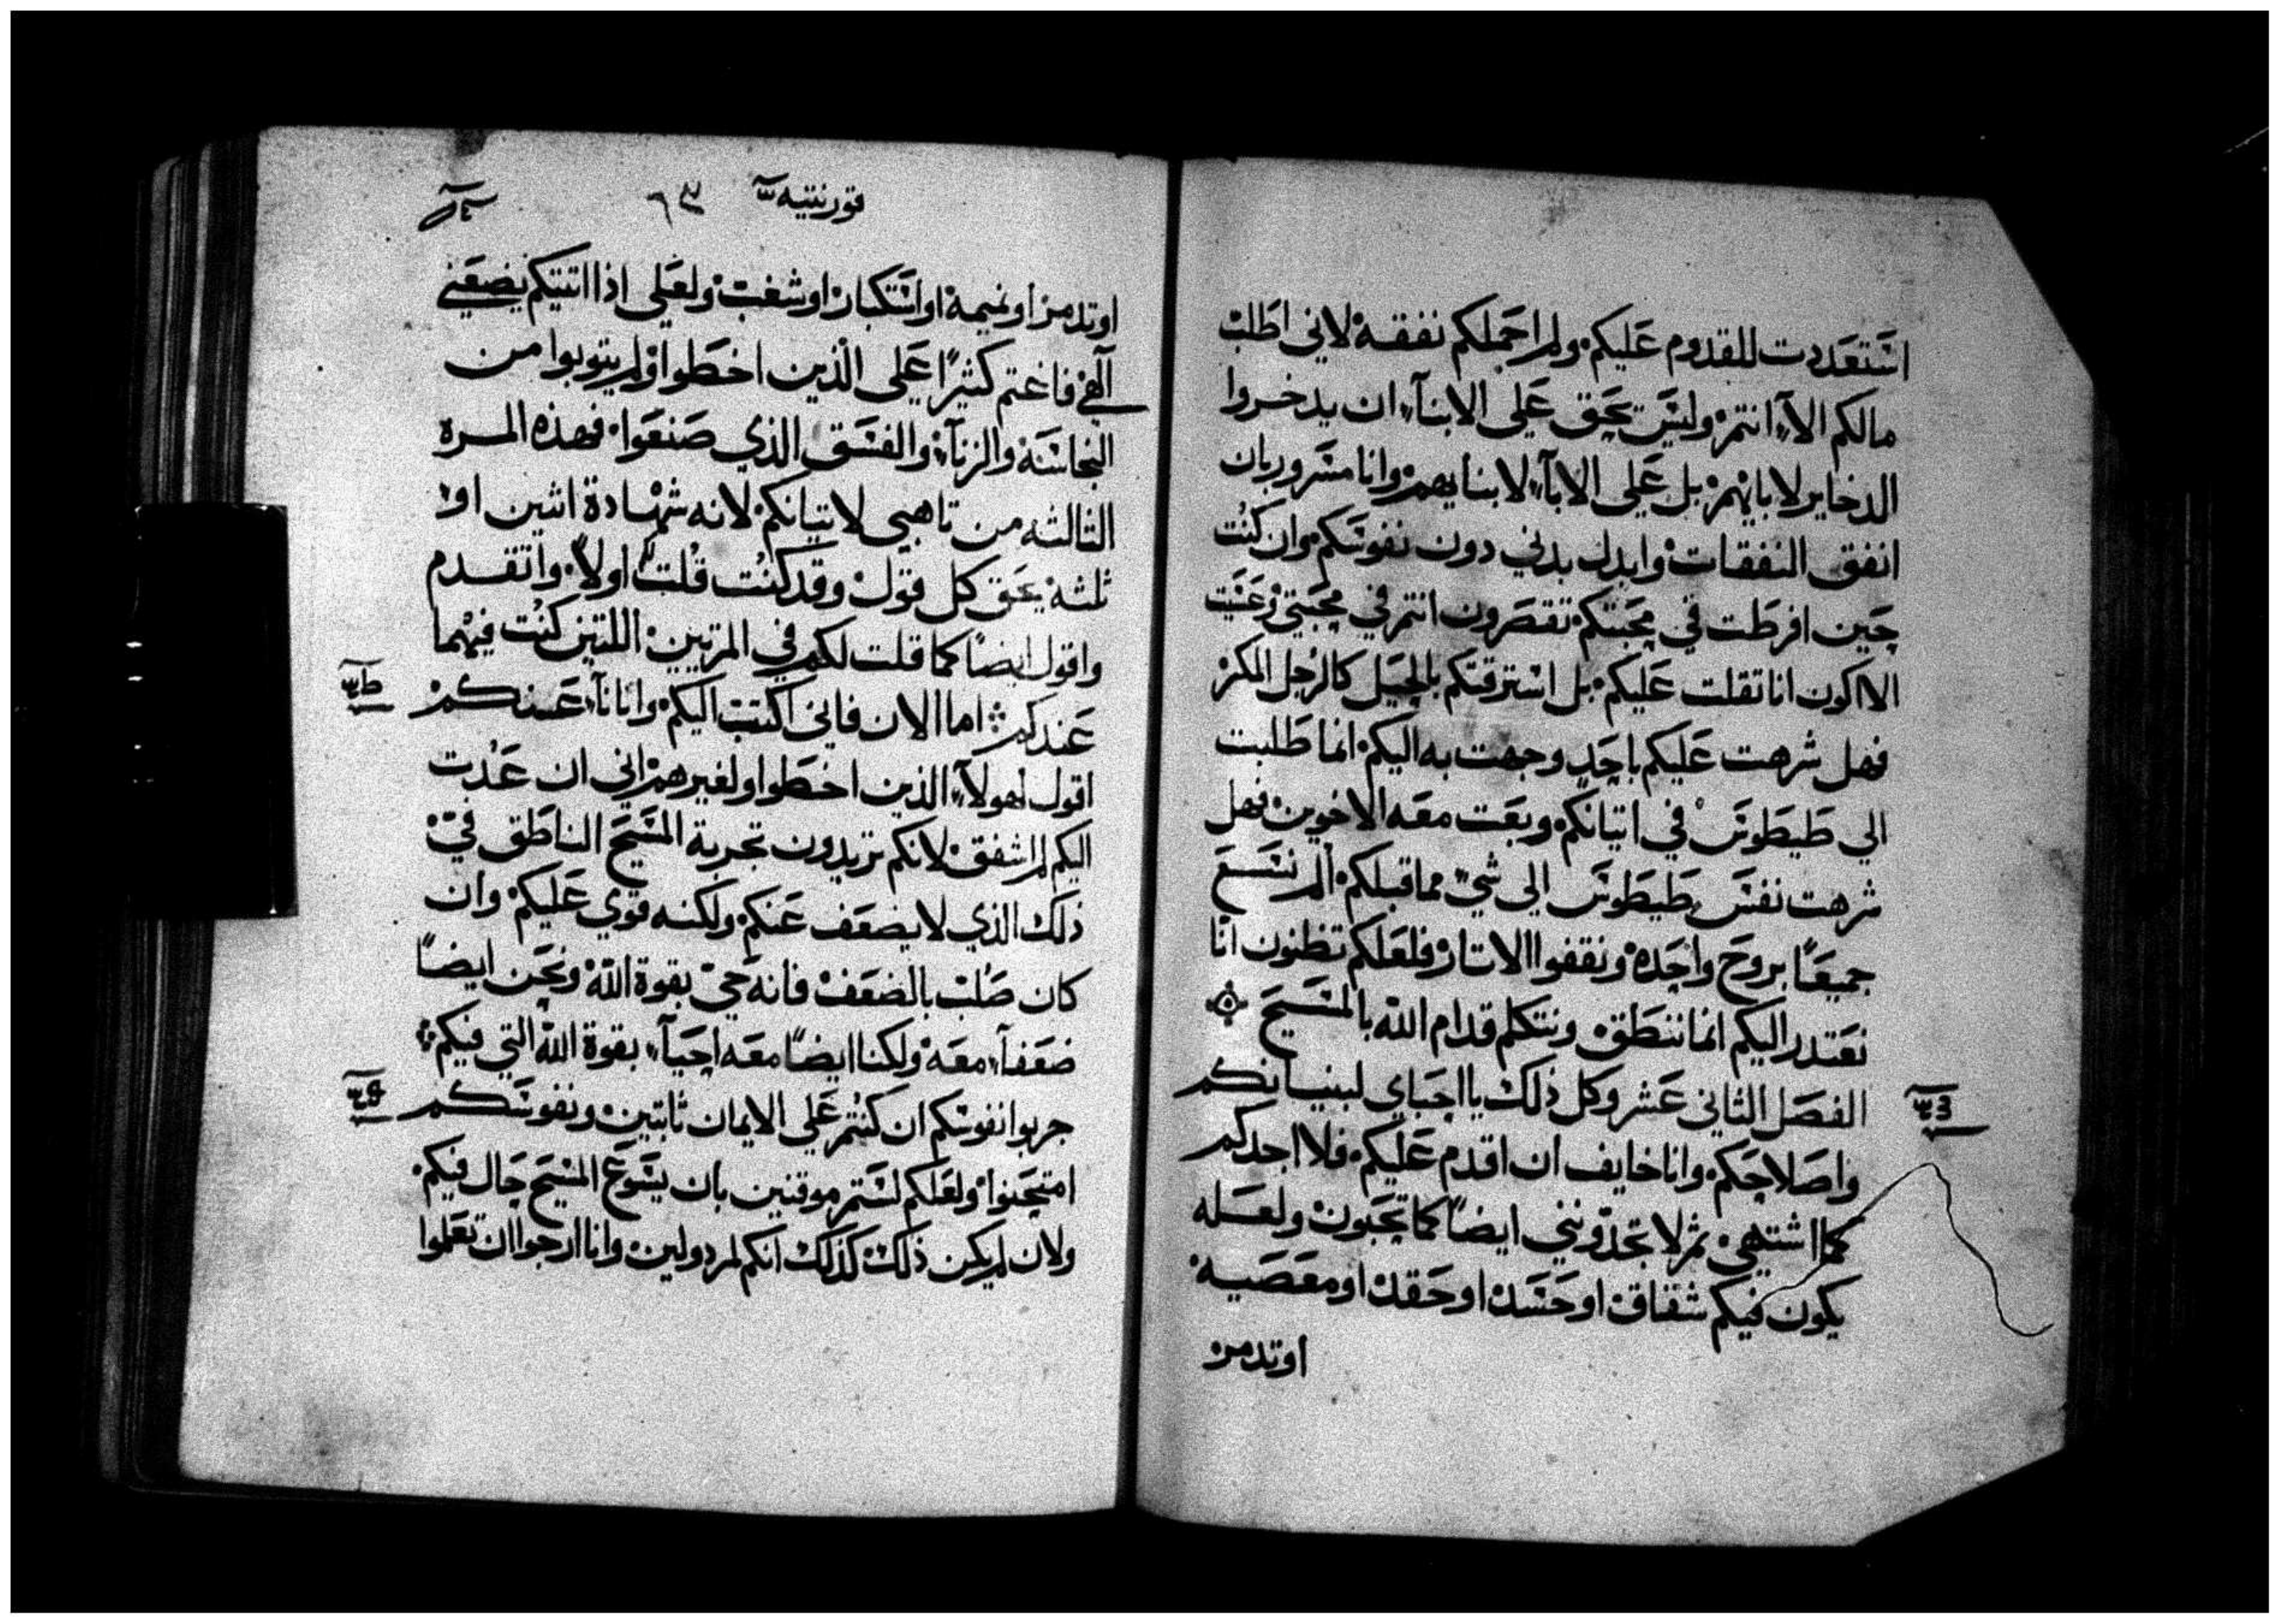 استعددت للقدوم عليكم ولم احملكم نفقة لاني اطلب
مالكم الآء انتم وليس يحق علي الابنآء ان يدخروا
الدخاير لابايهم بل علي الابآء لابنايهم وانا مسرور بان
انفق النفقات وابدل بدني دون نفوسكم وان كنت
حين افرطت في محبتكم تقصرون انتم في محبتي وعسيت
الا اكون انا تقلت عليكم بل استرقتكم بالحيل كالرجل المكر
فهل شرهت عليكم باحد وجهت به اليكم انما طلبت
الي طيطوس في اتيانكم وبعت معه الاخوين فهل
شرهت نفس طيطوس الي شيء مما قبلكم الم نسع
جميعًا بروح واحدة ونقفوا الاتار فلعلكم تظنون انّا
نعتدر اليكم انما ننطق ونتكلم قدام الله بالمسيح
الفصل الثاني عشر وكل ذلك يا احباي لبنيانكم
واصلاحكم وانا خايف ان اقدم عليكم فلا اجدكم
كما اشتهي ثم لا تجدونني ايضًا كما تحبون ولعله
يكون فيكم شقاق او حسد او حقد او معصية
او تدمر
قورنتيه ٦٣
او تدمر او نميمة او استكبار او شغب ولعلي اذا اتيتكم يضعني
آلهي فاغتم كثيرًا علي الذين اخطوا ولم يتوبوا من
النجاسة والزنآء والفسق الذي صنعوا فهذه المرة
الثالثه من تاهبي لاتيانكم لانه شهادة اثنين او
ثلثه يحق كل قول وقد كنت قلت اولاً واتقدم
واقول ايضًا كما قلت لكم في المرتين اللتين كنت فيهما
عندكم اما الان فاني اكتب اليكم وانا نآء عنكم
اقول لهولآء الذين اخطوا ولغيرهم اني ان عدت
اليكم لم اشفق لانكم تريدون تجربة المسيح الناطق فيّ
ذلك الذي لا يضعف عنكم ولكنه قوي عليكم وان
كان صُلب بالضعف فانه حيّ بقوة الله ونحن ايضًا
ضعفآء معه ولكنا ايضًا معه احيآء بقوة الله التي فيكم
جربوا نفوسكم ان كنتم علي الايمان ثابتين ونفوسكم
امتحنوا ولعلكم لستم موقنين بان يسوع المسيح حال فيكم
ولان لم يكن ذلك كذلك انكم لمردولين وانا ارجوا ان تعلموا